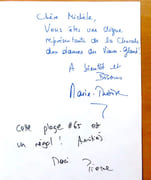 Chère Michèle,
Vous êtes une digne
représentante de la Chorale
des dames du Vieux-
A bientôt et
Bisous
Marie-Thérèse
cette plage #65 est
un régal ! Amitiés
Pierre